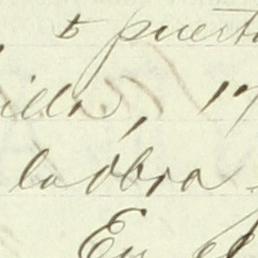 puert
illa, 17
la obra
En el